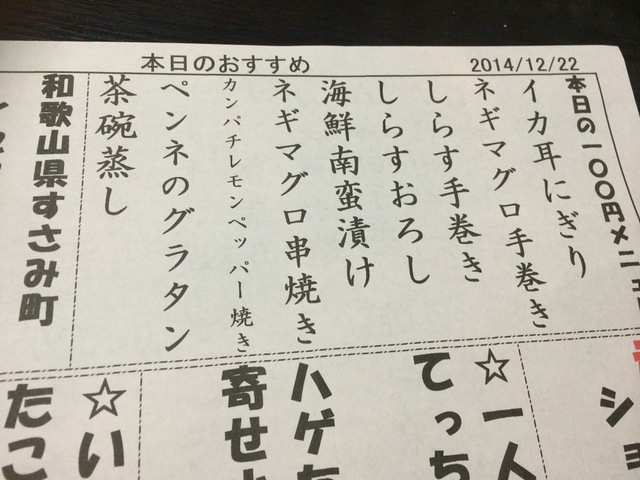 本日のおすすめ
2014/12/22
本日の一〇〇円メニュ
イカ耳にぎり
ネギマグロ手巻き
しらす手巻き
しらすおろし
海鮮南蛮漬け
ネギマグロ串焼き
カンパチレモンペッパー焼き
ペンネのグラタン
茶碗蒸し
和歌山県すさみ町
ショ
☆一人
てっち
ハゲ
寄せ
☆い
たこ